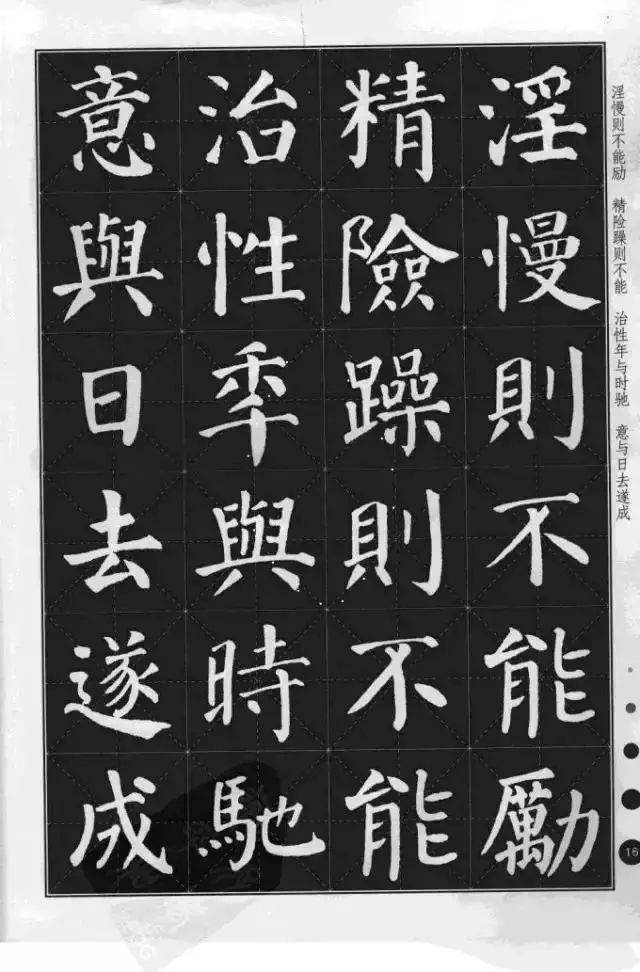 淫慢则不能励　精险躁则不能　治性年与时驰　意与日去遂成
淫慢則不能勵
精險躁則不能
治性年與時馳
意與日去遂成
16